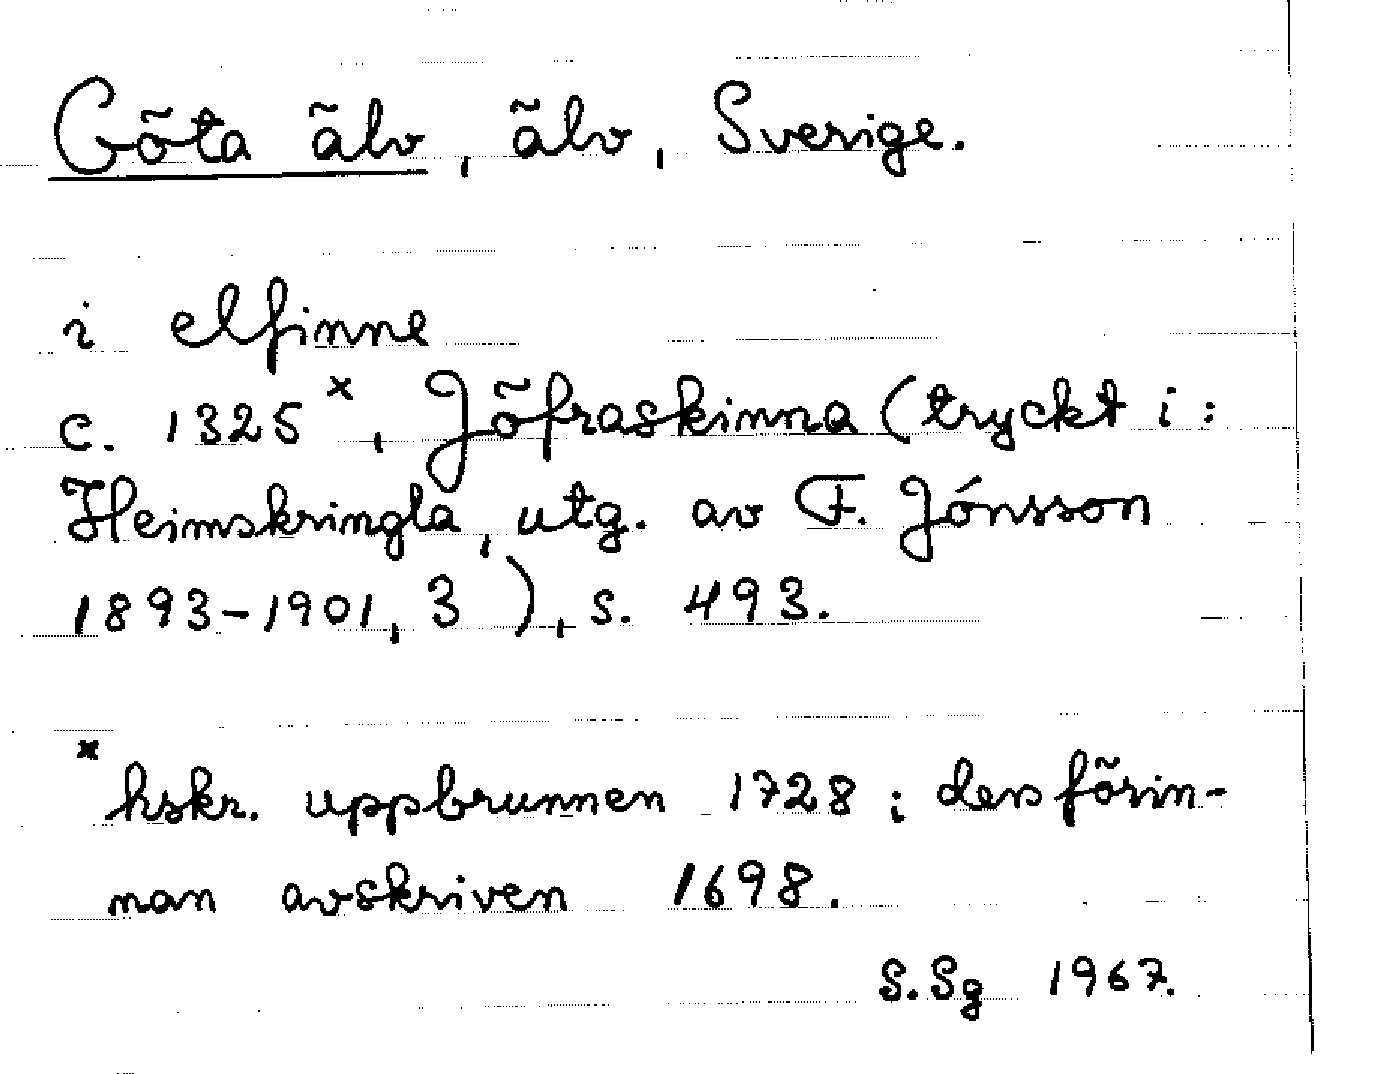 Göta älv, älv, Sverige.
i elfinne
c. 1325 x, Jöfraskinna (tryckt i:
Heimskringla, utg. av F. Jónsson
1893-1901, 3 ), s. 493.
x hskr. uppbrunnen 1728; dessförin-
nan avskriven 1698.
S.Sg 1967.